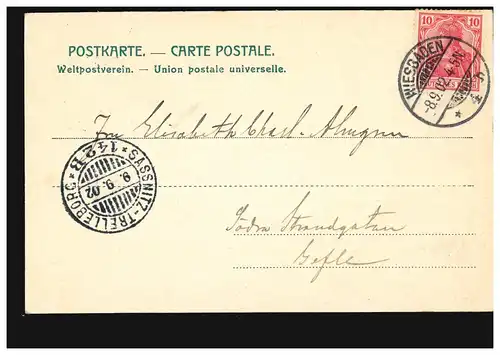 POSTKARTE. — CARTE POSTALE.
Weltpostverein. — Union postale universelle.
10 10
WIESBADEN
8.9.02. 4-5N.
* 4 h
Elisabeth Charl.
SASSNITZ-TRELLEBORG
* 142 B *
9. 9. 02
Södra Strandgatan
Gefle.